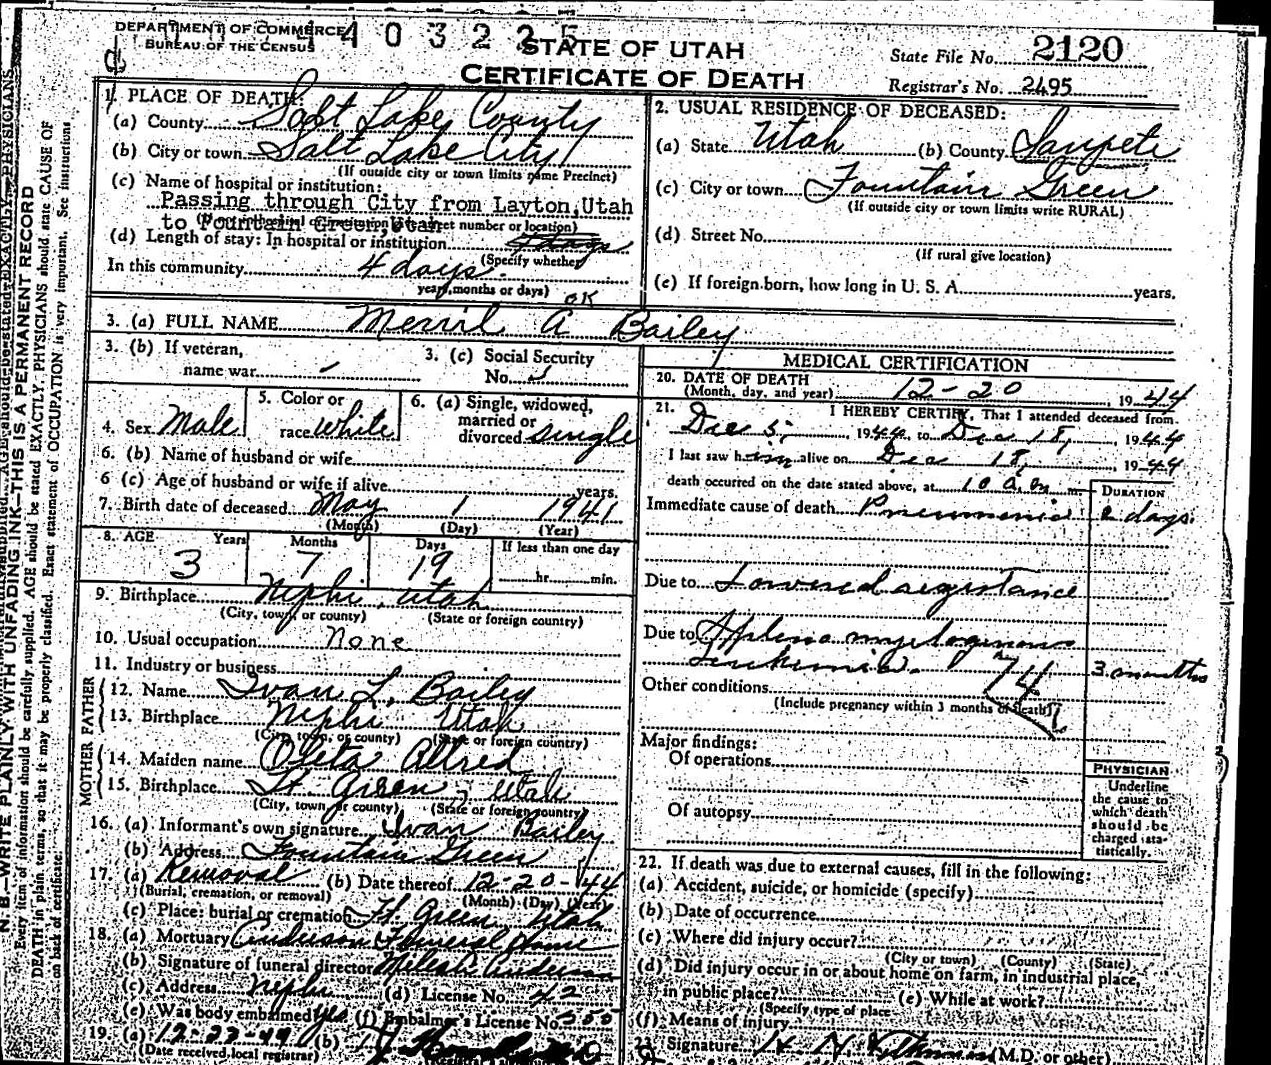 DEPARTMENT OF COMMERCE
BUREAU OF THE CENSUS
403225
STATE OF UTAH
CERTIFICATE OF DEATH
State File No. 2120
Registrar's No. 2495
1. PLACE OF DEATH:
(a) County Salt Lake County
(b) City or town Salt Lake City
(If outside city or town limits name Precinct)
(c) Name of hospital or institution:
Passing through City from Layton, Utah
to Fountain Green, Utah
(d) Length of stay: In hospital or institution 4 days
(Specify whether
In this community 4 days.
years, months or days)
2. USUAL RESIDENCE OF DECEASED:
(a) State Utah (b) County Sanpete
(c) City or town Fountain Green
(If outside city or town limits write RURAL)
(d) Street No.
(If rural give location)
(e) If foreign born, how long in U. S. A. years.
OK
3. (a) FULL NAME Merril A Bailey
3. (b) If veteran,
name war
3. (c) Social Security
No.
4. Sex Male
5. Color or
race white
6. (a) Single, widowed,
married or
divorced single
6. (b) Name of husband or wife
6 (c) Age of husband or wife if alive years.
7. Birth date of deceased May 1 1941
(Month) (Day) (Year)
8. AGE Years Months Days If less than one day
3 7 19 hr. min.
9. Birthplace Nephi, Utah
(City, town, or county) (State or foreign country)
10. Usual occupation None
11. Industry or business
FATHER
12. Name Ivan L. Bailey
13. Birthplace Nephi Utah
(City, town, or county) (State or foreign country)
MOTHER
14. Maiden name Oleta Allred
15. Birthplace Ft. Green, Utah
(City, town, or county) (State or foreign country)
16. (a) Informant's own signature Ivan Bailey
(b) Address Fountain Green
17. (a) Removal (b) Date thereof 12-20-44
(Burial, cremation, or removal) (Month) (Day) (Year)
(c) Place: burial or cremation Ft. Green Utah
18. (a) Mortuary Anderson Funeral Home
(b) Signature of funeral director Anderson
(c) Address Nephi (d) License No. 42
(e) Was body embalmed yes (f) Embalmer's License No.
19. (a) 12-23-44 (b)
(Date received local registrar)
MEDICAL CERTIFICATION
20. DATE OF DEATH
(Month, day, and year) 12-20, 1944
21. I HEREBY CERTIFY, That I attended deceased from
Dec 5, 1944, to Dec 18, 1944
I last saw him alive on Dec 18, 1944
death occurred on the date stated above, at 10 a.m. m.
DURATION
Immediate cause of death Pneumonia 2 days
Due to Lowered resistance
Due to myelogenous
Leukemia. 3 months
74
Other conditions
(Include pregnancy within 3 months of death)
Major findings:
Of operations
Of autopsy
PHYSICIAN
Underline
the cause to
which death
should be
charged sta-
tistically.
22. If death was due to external causes, fill in the following:
(a) Accident, suicide, or homicide (specify)
(b) Date of occurrence
(c) Where did injury occur?
(City or town) (County) (State)
(d) Did injury occur in or about home on farm, in industrial place,
in public place? (e) While at work?
(Specify type of place
(f) Means of injury
23. Signature (M.D. or other)
N. B.—WRITE PLAINLY WITH UNFADING INK—THIS IS A PERMANENT RECORD
Every item of information should be carefully supplied. AGE should be stated EXACTLY. PHYSICIANS should state CAUSE OF
DEATH in plain terms, so that it may be properly classified. Exact statement of OCCUPATION is very important. See instructions
on back of certificate.